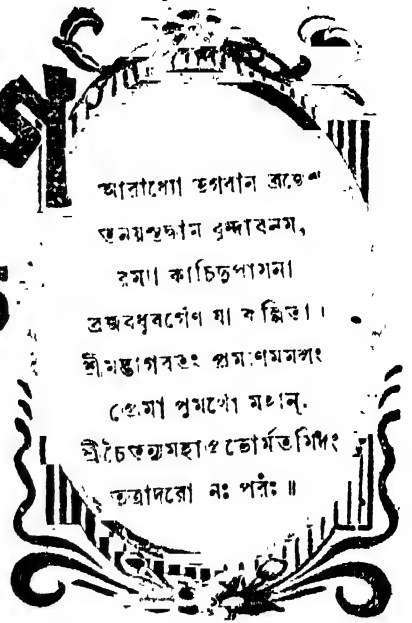 আরাধ্যো ভগবান ব্রজেশ
তনয়স্তদ্ধাম বৃন্দাবনম,
রম্যা কাচিদুপাসনা
ব্রজবধূবর্গেণ যা কল্পিতা।
শ্রীমদ্ভাগবতং প্রমাণমমলং
প্রেমা পুমর্থো মহান্.
শ্রীচৈতন্যমহাপ্রভোর্মতমিদং
তত্রাদরো নঃ পরঃ॥